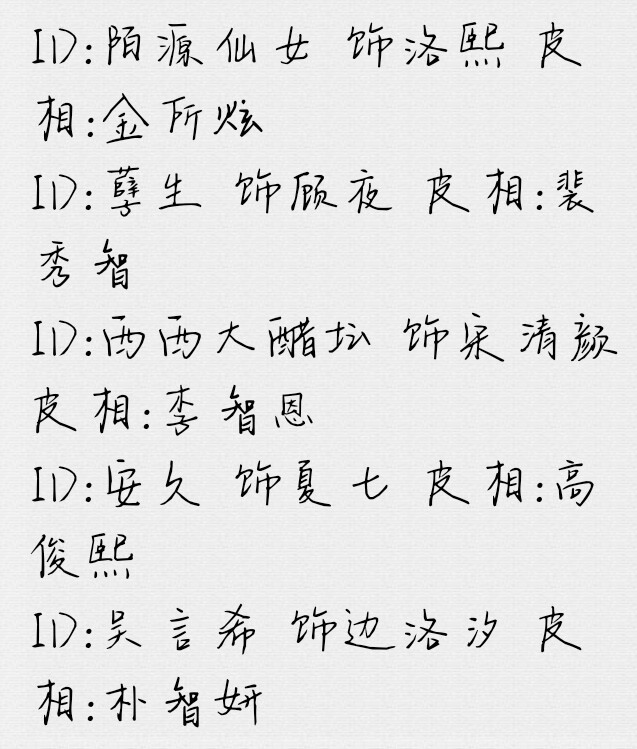 ID:陌源仙女 饰洛熙 皮
相:金所炫
ID:孽生 饰顾夜 皮相:裴
秀智
ID:西西大醋坛 饰宋清颜
皮相:李智恩
ID:安久 饰夏七 皮相:高
俊熙
ID:吴言希 饰边洛汐 皮
相:朴智妍